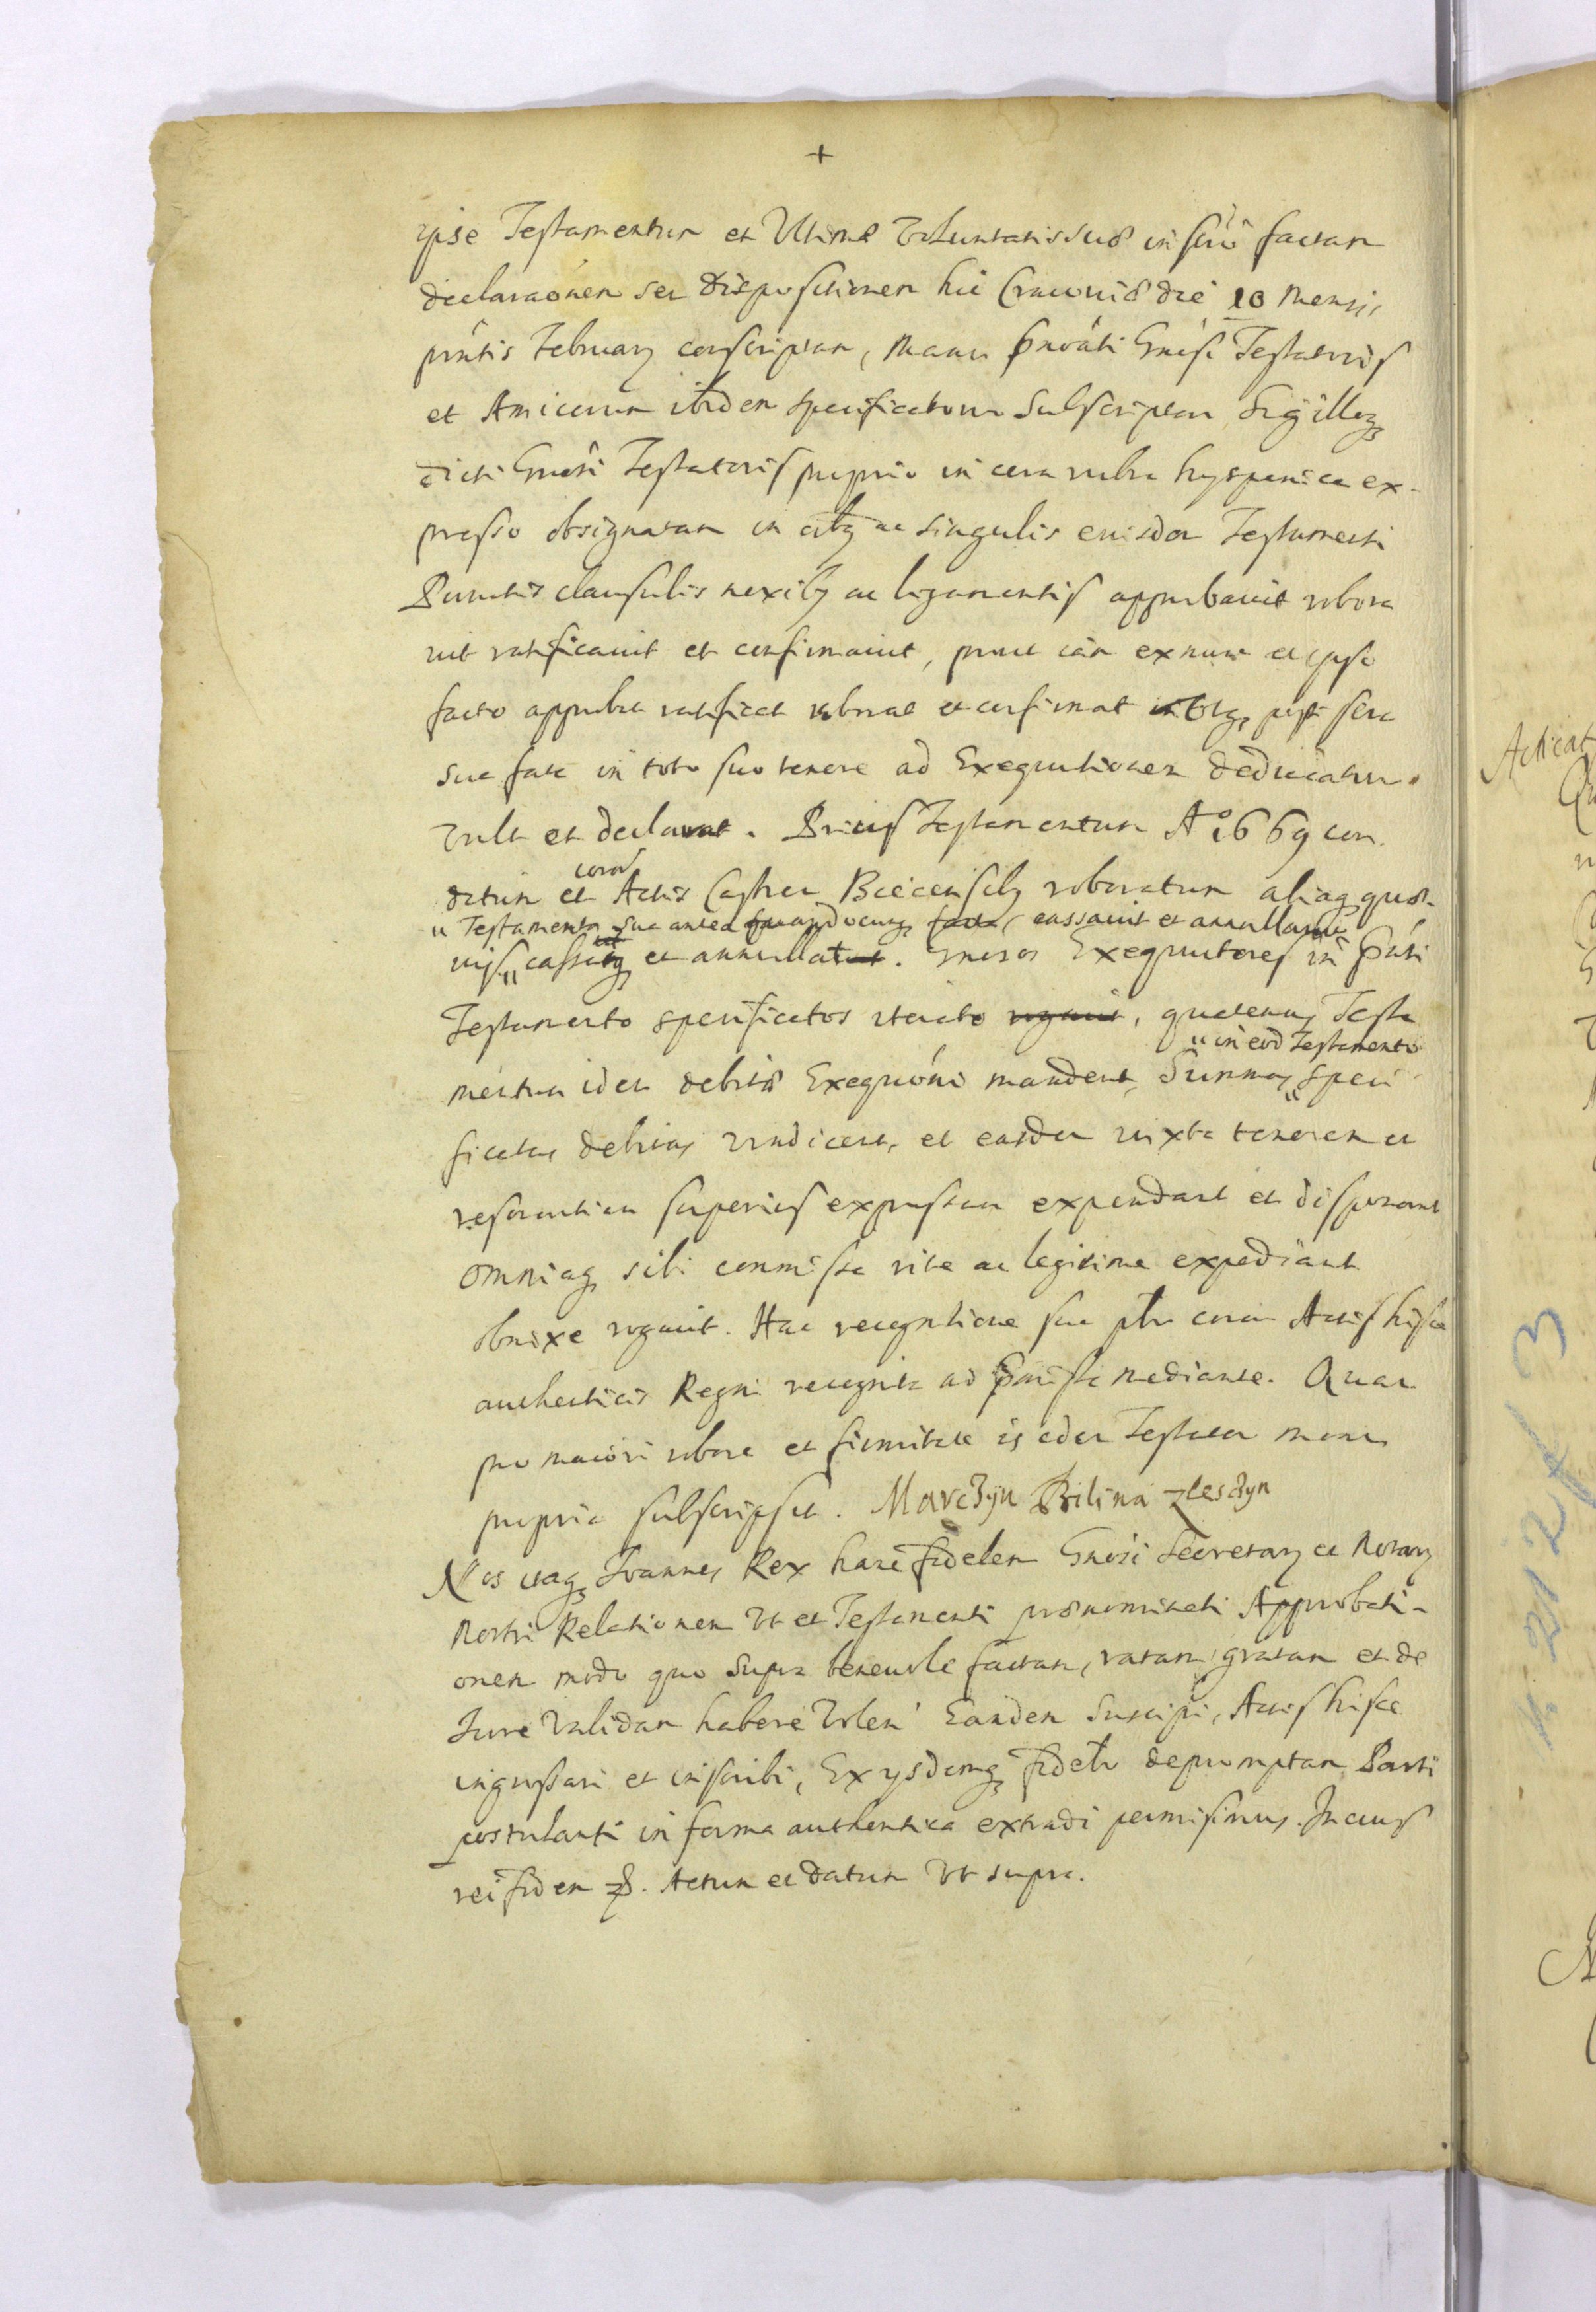 +
ipse Testamentum et Ultimæ Voluntatis suæ in scriô factam
declaraônem seu dispositionem hic Cracoviæ die 10 Mensis
prntis February conscriptam, Manu Gnôsi Testatoris
et Amicorum ibidem specificatorum subscriptam Sigilloq
dicti Gnôsi Testatoris proprio in cera rubra hyspanica ex-
presso obsignatam in oîbq ac singulis eiusdem Testamenti
Punctis clausulis nexibq ac ligamentis approbavit robora
vit ratificavit et confirmavit, prout iam ex nunc et ipso
facto approbat ratificat roborat et confirmat post sera
sua fata in toto suo tenore ad Exequutionem deducatur
vult et declarat. Prius Testamentum A° 1669 con
ditum et coram Actis Castren Biecensibq roboratum aliaq quæ-
" Testamenta sua antea facta, cassavit et annullavit
vis " cassat et annullat. Gnosos Exequutores in
Testamento specificatos iterato rogavit, quatenus Testa
" in eod Testamento
mentum idem debitæ Exequôni mandent, Summas " speci
ficatas debitas vindicent, et easdem iuxta tenorem et
superius expressam expendant et disponant
omniaq sibi commissa rite ac legitime expediant
obnixe rogavit. Hac recognitione sua coram Actis hisce
authenticis Regni recognita ad mediante. Quam
pro maiori robore et firmitate is idem Testator manu
propria subscripsit. Marczyn Bilina Zlesczyn
Nos itaq Ioannes Rex hanc fidelem Gnôsi Secretary et Notary
Nostri Relationem Ut et Testamenti prænominati Approbati-
onem modo quo supra benevole factam, ratam, gratam et de
Iure Validam habere Volen Eandem suscipi, Actis hisce
ingrossari et inscribi, Ex ysdemq fidelr depromptam Parti
postulanti in forma authentica extradi permisimus. In cuius
rei fidem. Actum et datum Ut supra.
Acticat